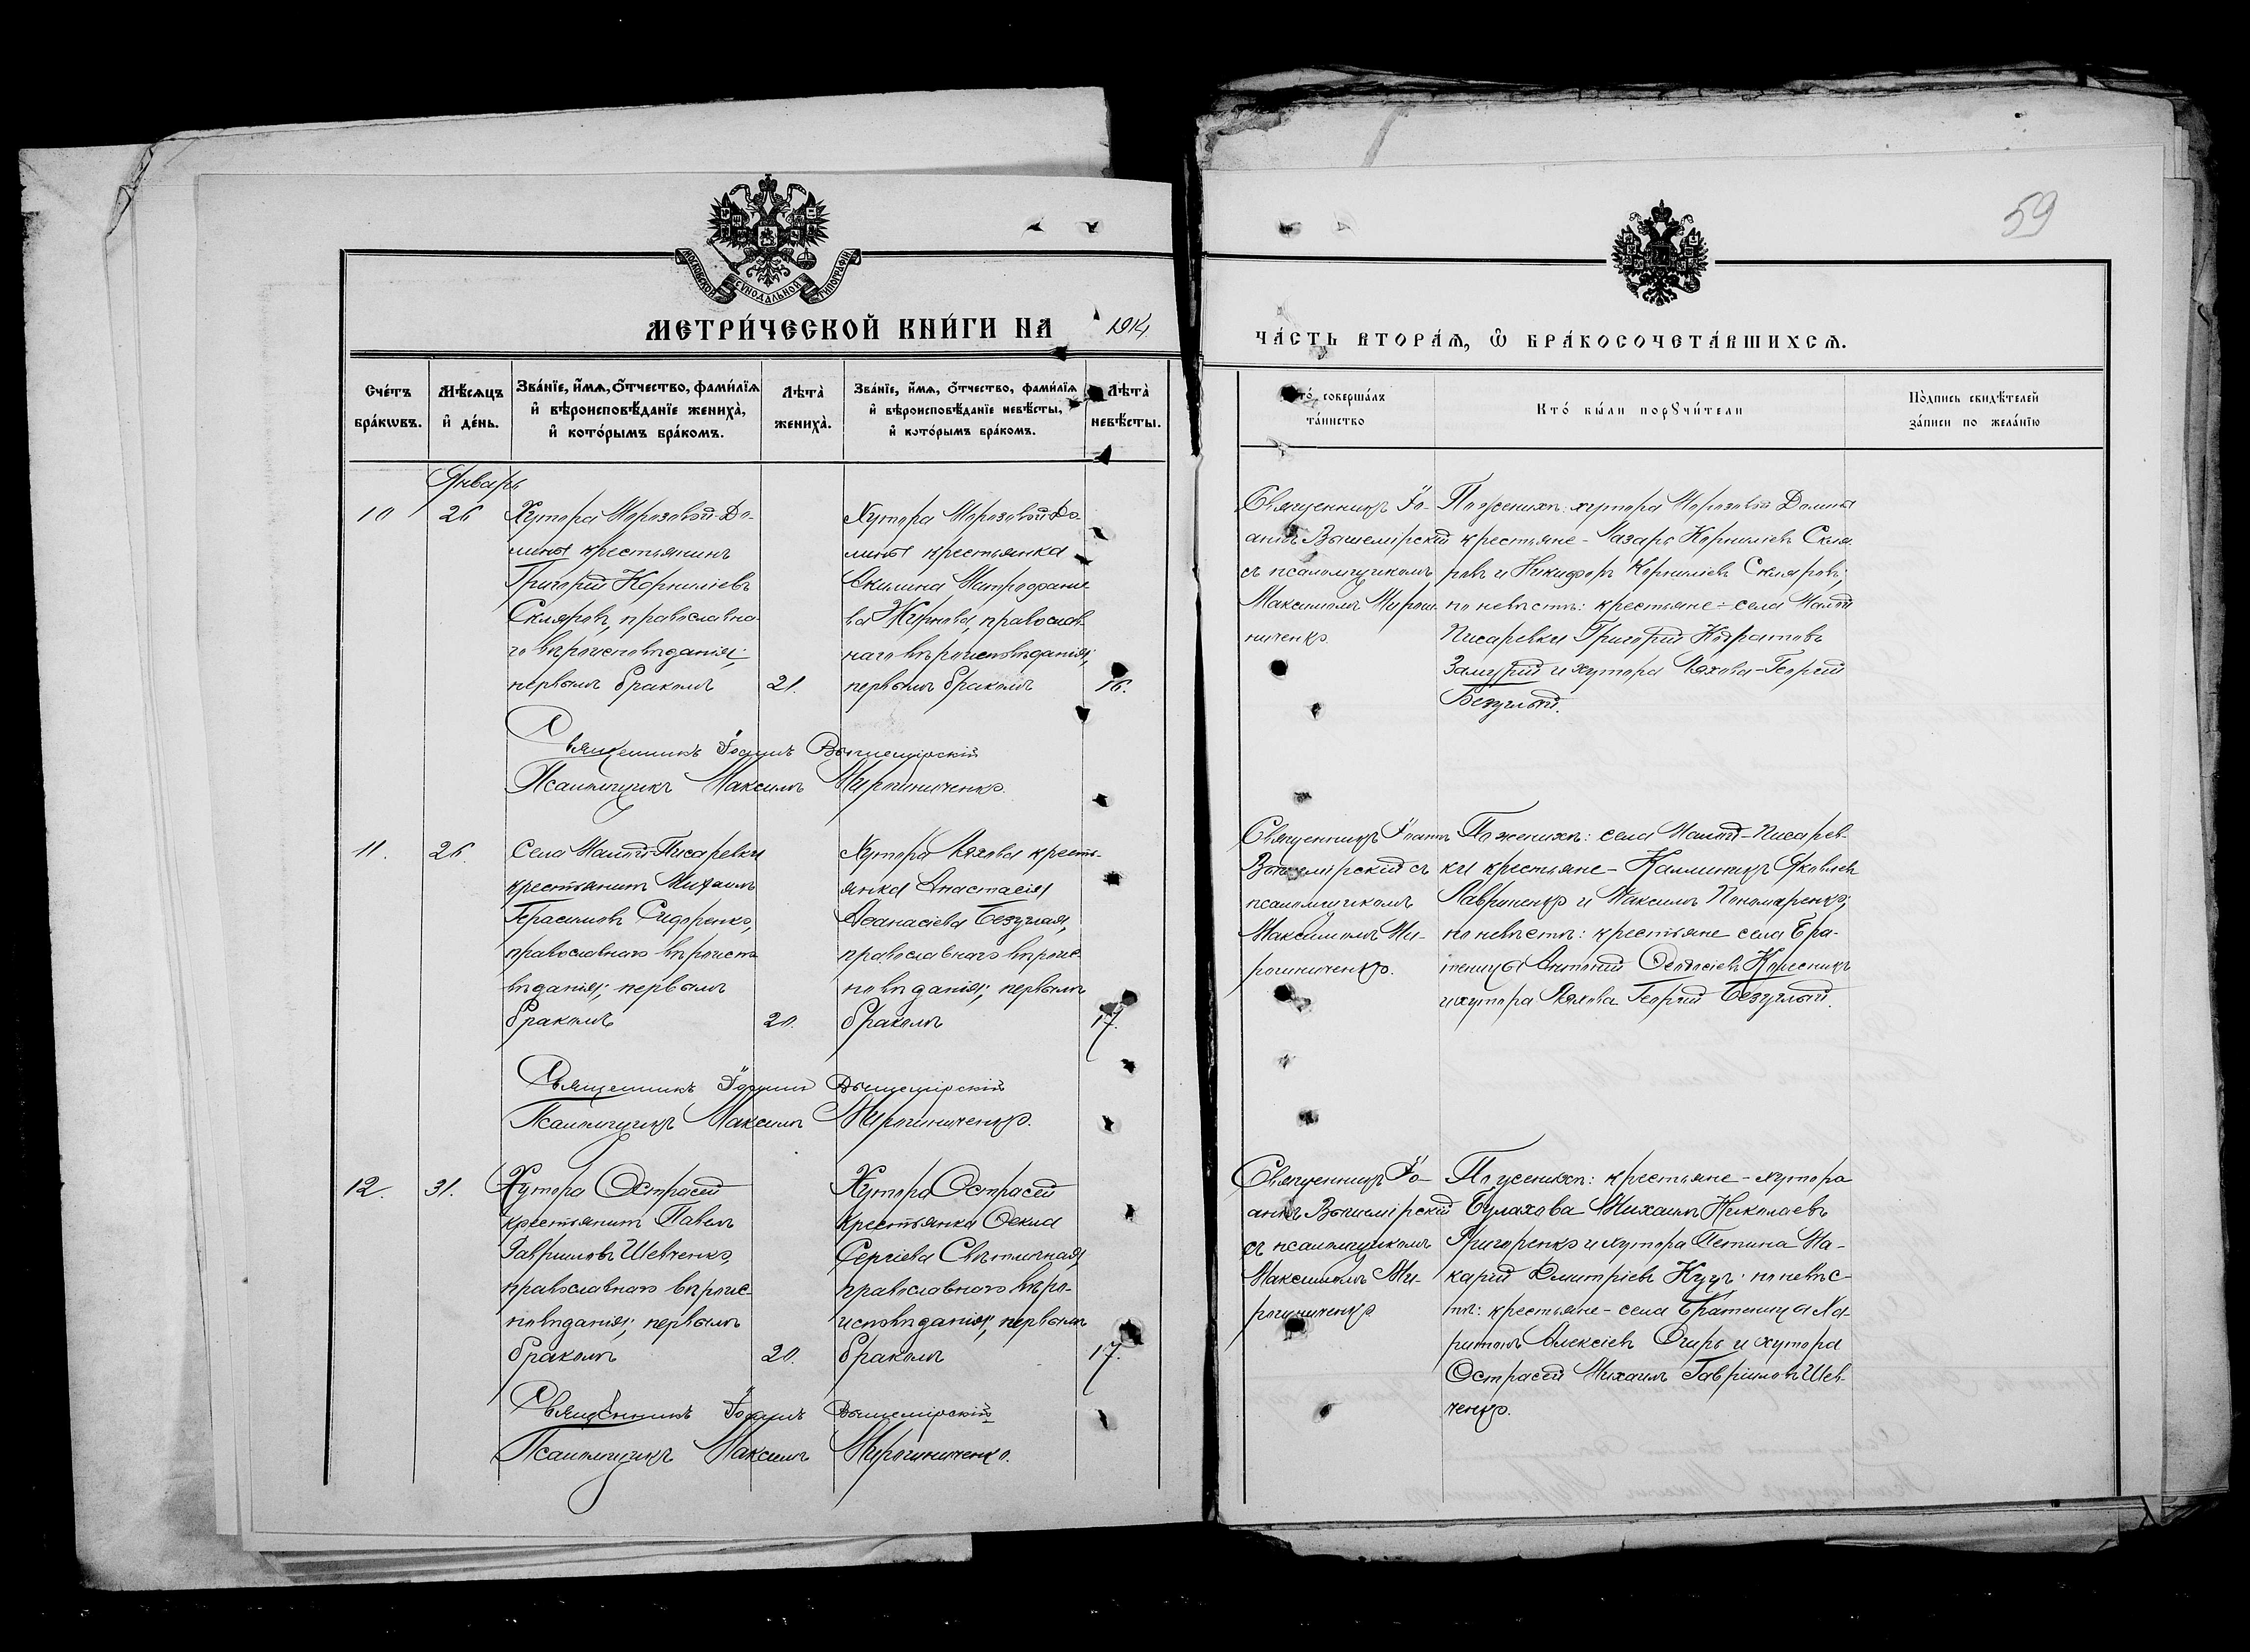 МОСКОВСКОЙ СУНОДАЛЬНОЙ ТИПОГРАФІИ
МЕТРИ́ЧЕСКОЙ КНИ́ГИ НА 1914
Сче́тъ бра́кѡвъ.
Мѣ́сѧцъ и҆ де́нь.
Зва́нїе, и҆́мѧ, ѻ҆́тчество, фами́лїѧ
и҆ вѣроисповѣ́данїе жениха̀,
и҆ кото́рымъ бра́комъ.
Лѣта̀ жениха̀.
Зва́нїе, и҆́мѧ, ѻ҆́тчество, фами́лїѧ
и҆ вѣроисповѣ́данїе невѣ́сты,
и҆ кото́рымъ бра́комъ.
Лѣта̀ невѣ́сты.
Январь
10
26
Хутора Морозовой-До-
лины крестьянинъ
Григорій Корниліевъ
Скляровъ, православна-
го вѣроисповѣданія;
первымъ бракомъ
21.
Хутора Морозовой-До-
лины крестьянка
Акилина Митрофано-
ва Жирнова, православ-
наго вѣроисповѣданія;
первымъ бракомъ
16.
Священникъ Іоаннъ Вышемірскій
Псаломщикъ Максимъ Мирошниченко.
11.
26.
Села Малой-Писаревки
крестьянинъ Михаилъ
Герасимовъ Сидоренко,
православнаго вѣроиспо-
вѣданія; первымъ
бракомъ
20.
Хутора Ляхова кресть-
янка Анастасія
Аѳанасіева Безуглая,
православнаго вѣроис-
повѣданія; первымъ
бракомъ
17.
Священникъ Іоаннъ Вышемірскій
Псаломщикъ Максимъ Мирошниченко.
12.
31.
Хутора Острасей
крестьянинъ Павелъ
Гавриловъ Шевченко,
православнаго вѣроис-
повѣданія; первымъ
бракомъ
20.
Хутора Острасей
крестьянка Ѳекла
Сергіева Свѣтличная,
православнаго вѣро-
исповѣданія; первымъ
бракомъ
17.
Священникъ Іоаннъ Вышемірскій
Псаломщикъ Максимъ Мирошниченко.
59
ЧА́СТЬ ВТОРА́Ѧ, Ѡ҆ БРАКОСОЧЕТА́ВШИХСѦ.
Кто́ соверша́лъ та́инство
Кто́ бы́ли порꙋчи́тели
По́дпись свидѣ́телей
за́писи по жела́нїю
Священникъ Іо-
аннъ Вышемірскій
съ псаломщикомъ
Максимомъ Мирош-
ниченко.
По женихѣ: хутора Морозовой Долины
крестьяне - Лазарь Корниліевъ Скля-
ровъ и Никифоръ Корниліевъ Скляровъ;
по невѣстѣ: крестьяне - села Малой
Писаревки Григорій
и хутора Ляхова - Георгій
Безуглый.
Священникъ Іоаннъ
Вышемірскій съ
псаломщикомъ
Максимомъ Ми-
рошниченко.
По женихѣ: села Малой-Писарев-
ки крестьяне - Каллиникъ Яковлевъ
Лавриненко и Максимъ Пономаренко;
по невѣстѣ: крестьяне села Бра-
теницы Антоній Ѳеодосіевъ Колесникъ
и хутора Ляхова Георгій Безуглый.
Священникъ Іо-
аннъ Вышемірскій
съ псаломщикомъ
Максимомъ Ми-
рошниченко
По женихѣ: крестьяне - хутора
Булахова Михаилъ Николаевъ
Григоренко и хутора Петина Ма-
карій Димитріевъ Куцъ; по невѣс-
тѣ: крестьяне - села Братеницы Ха-
ритонъ Алексіевъ Огирь и хутора
Острасей Михаилъ Гавриловъ Шев-
ченко.